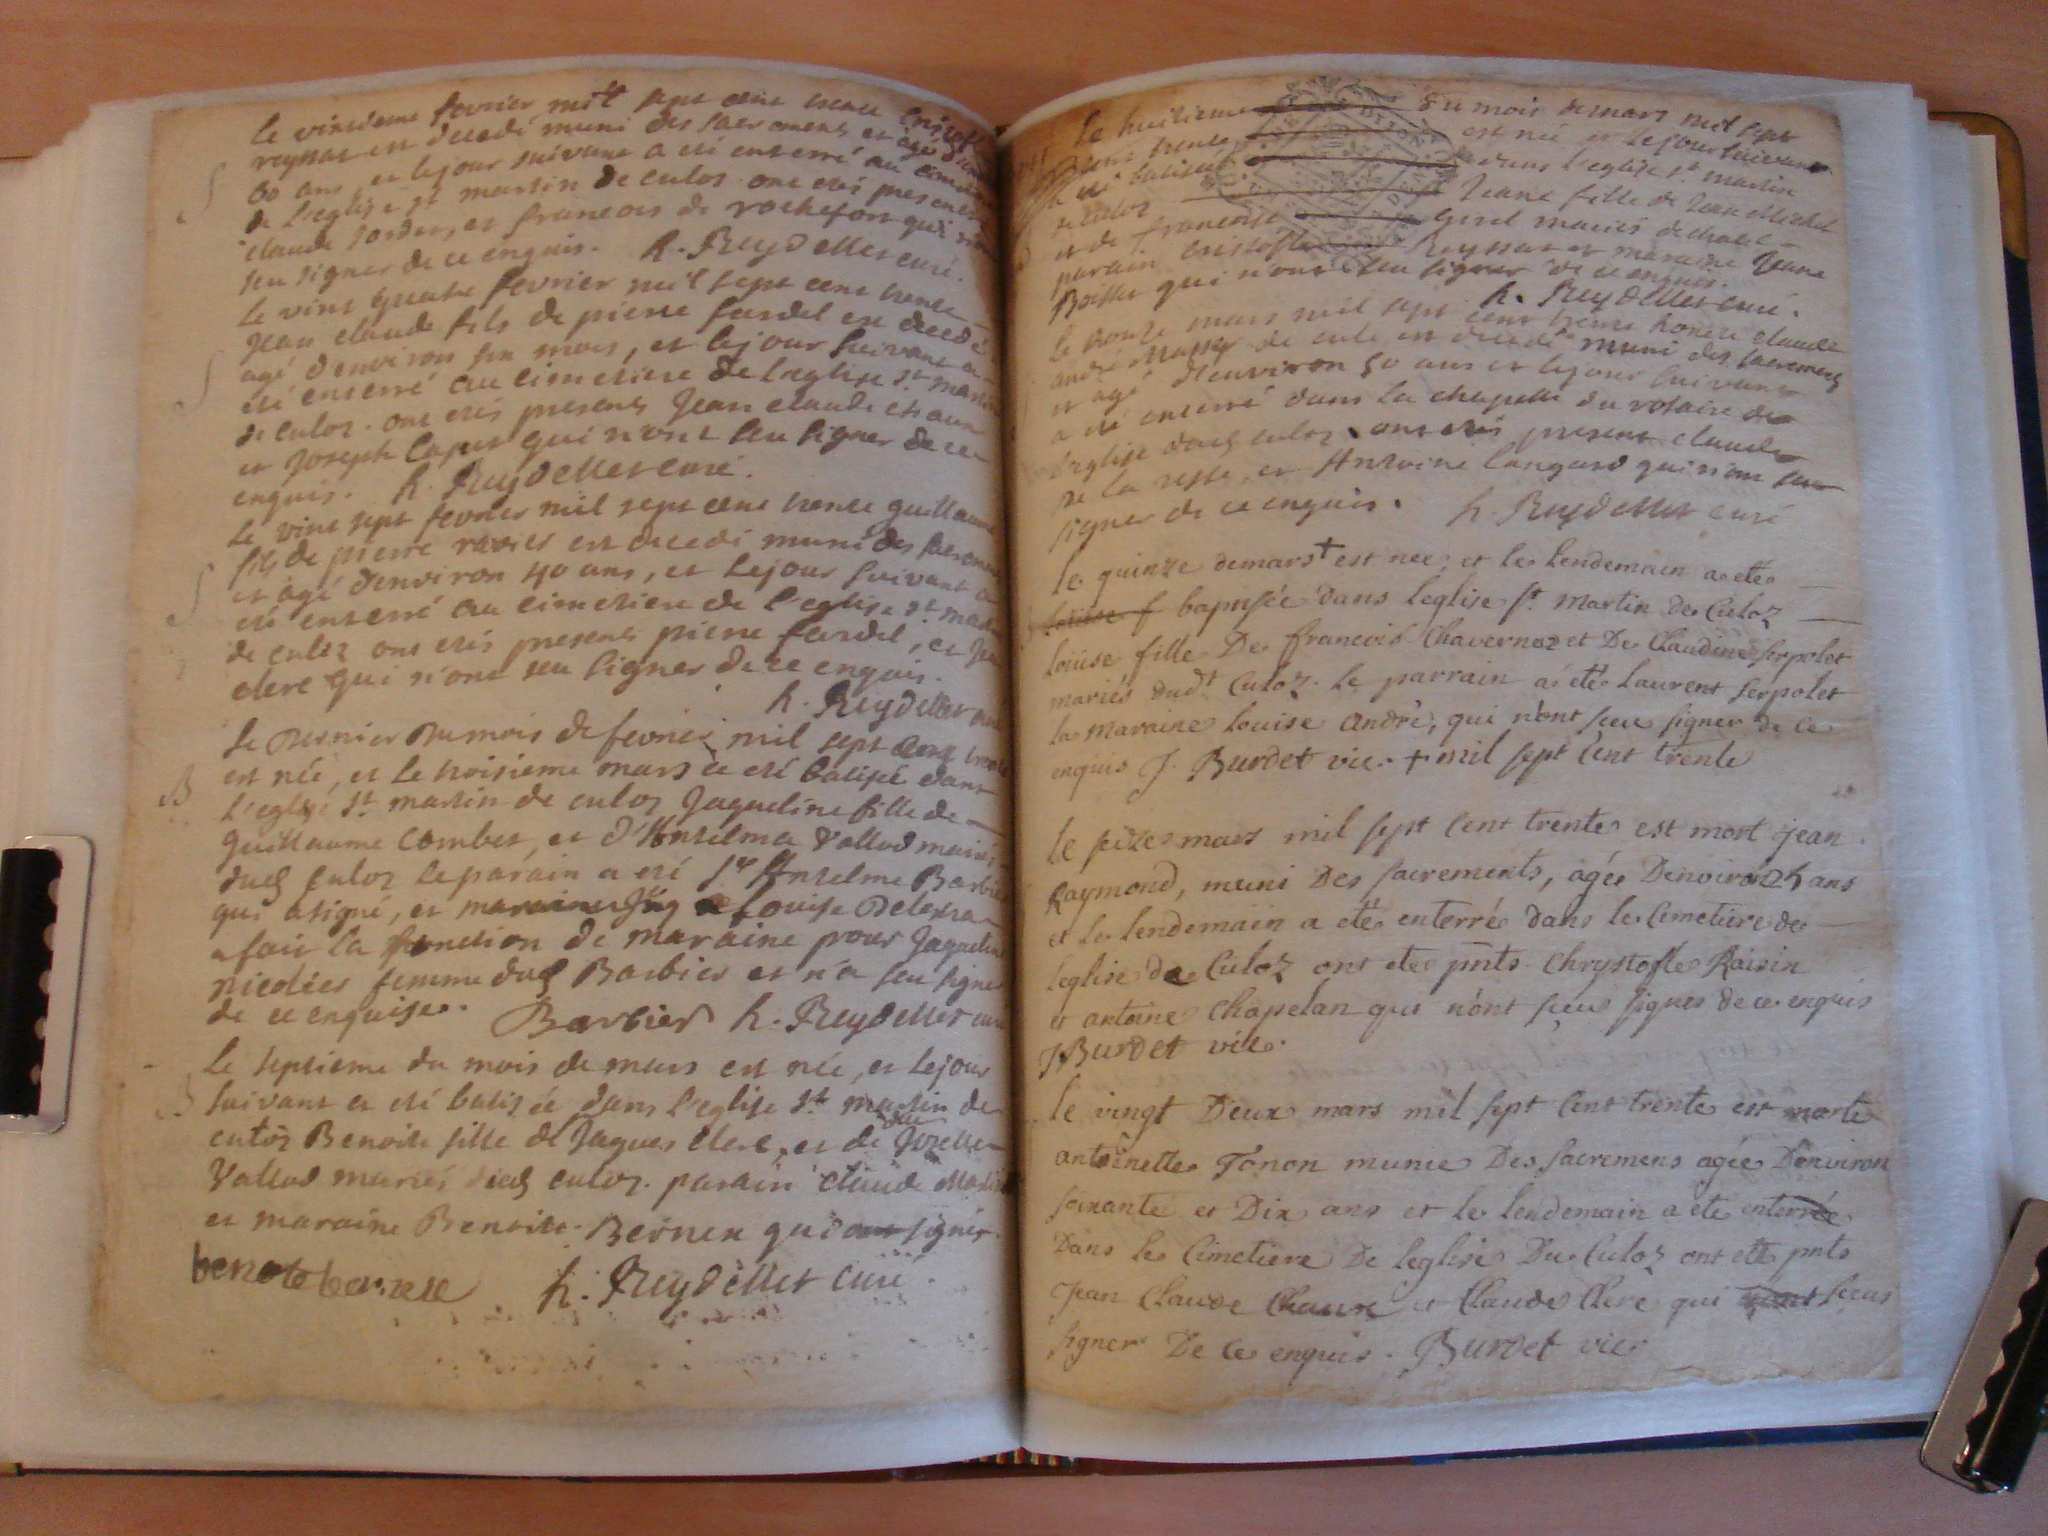 le vintieme fevrier mil sept cent trente
reyssat est decedé muni des sacrements et agé
60 ans, et le jour suivant a eté enterré au
de l'eglise st martin de culoz. ont etés presents
claude et francois de rochefort qui
seu signer de ce enquis. h. Reydellet curé.
Le vint quatre fevrier mil sept cent trente
Jean claude fils de pierre fardel est decedé
agé denviron six mois, et le jour suivant a
eté enterré au cimetiere de l'eglise st martin
de culoz. ont etés presents Jean claude
et Joseph qui n'ont seu signer de ce
enquis. h. Reydellet curé.
Le vint sept fevrier mil sept cent trente guillaume
fils de pierre ravier est decedé muni des
et agé denviron 40 ans, et le jour suivant a
eté enterré au cimetiere de l'eglise st
de culoz ont etés presents pierre fardel, et
clerc qui n'ont seu signer de ce enquis.
h. Reydellet
Le dernier du mois de fevrier mil sept cent
est née, et le troisieme mars a eté batisée dans
l'eglise st martin de culoz Jaqueline fille de
guillaume combet, et d'Anselma Vallod mariés
dud culoz le parain a eté sr Anselme
qui a signé, et Louise
a fait la fonction de maraine pour
femme dud Barbier et n'a seu signer
de ce enquise. Barbier h. Reydellet
Le septieme du mois de mars est née, et le jour
suivant a eté batisée dans l'eglise st martin de
culoz Benoite fille de Jaques clerc, et de
Vallod mariés dud culoz. parain claude
et maraine Benoite Bernen qui ont signés.
h. Reydellet curé.
Le huitieme du mois de mars mil sept
cent trente est née et le jour suivant
a eté batisée dans l'eglise st martin
de culoz Jeane fille de Jean Michel
et de francoise mariés
parain cristofle Reyssat et maraine Jeane
qui n'ont seu signer de ce enquis.
h. Reydellet curé.
Le mars mil sept cent trente claude
andré de culoz est decedé muni des sacrements
et agé d'environ 50 ans et le jour suivant
a eté enterré dans la chapelle du rosaire de
l'eglise dud culoz. ont etés present claude
de la et Antoine qui n'ont seu
signer de ce enquis. h. Reydellet curé
le quinze de mars + est nee, et le lendemain a eté
louise f baptisée dans leglise St. Martin de Culoz
louise fille De francois Chavernoz et De Claudine serpolet
mariés dudt Culoz. le parrain a été laurent serpolet
la maraine louise andrè, qui n'ont seu signer de ce
enquis J. Burdet vic. + mil sept cent trente
le seize mars mil sept cent trente est mort jean
Raymond, muni Des sacrements, agée Denviron ans
et le lendemain a eté enterrée dans le Cimetiere de
leglise de Culoz ont eté pnts Chrystofle Raisin
et antoine Chapelan qui n'ont seu signer de ce enquis
JBurdet vic.
le vingt Deux mars mil sept cent trente est morte
antoinette Tonon munie Des sacremens agée D'environ
soixante et Dix ans et le lendemain a eté enterrée
Dans le Cimetiere De leglise De Culoz ont eté pnts
Jean Claude et Claude Clerc qui n'ont seeus
signer De ce enquis. Burdet vic